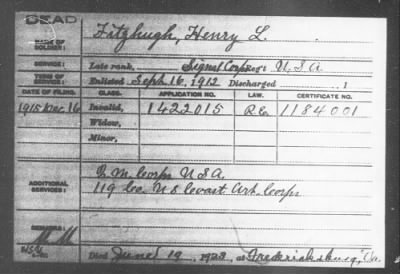 DEAD
NAME OF SOLDIER: Fitzhugh, Henry L.
SERVICE: Late rank, Signal Corps Reg't U.S.A.
TERM OF SERVICE: Enlisted Sept. 16, 1912 Discharged , 1
DATE OF FILING. CLASS. APPLICATION NO. LAW. CERTIFICATE NO.
1915 Dec. 16 Invalid, 1422015 1184001
Widow,
Minor,
ADDITIONAL SERVICES: Q. M. Corps U S A
119 Co. U S Coast Art. Corps
REMARKS:
Died June 19, 1923, at Fredericksburg, Va.